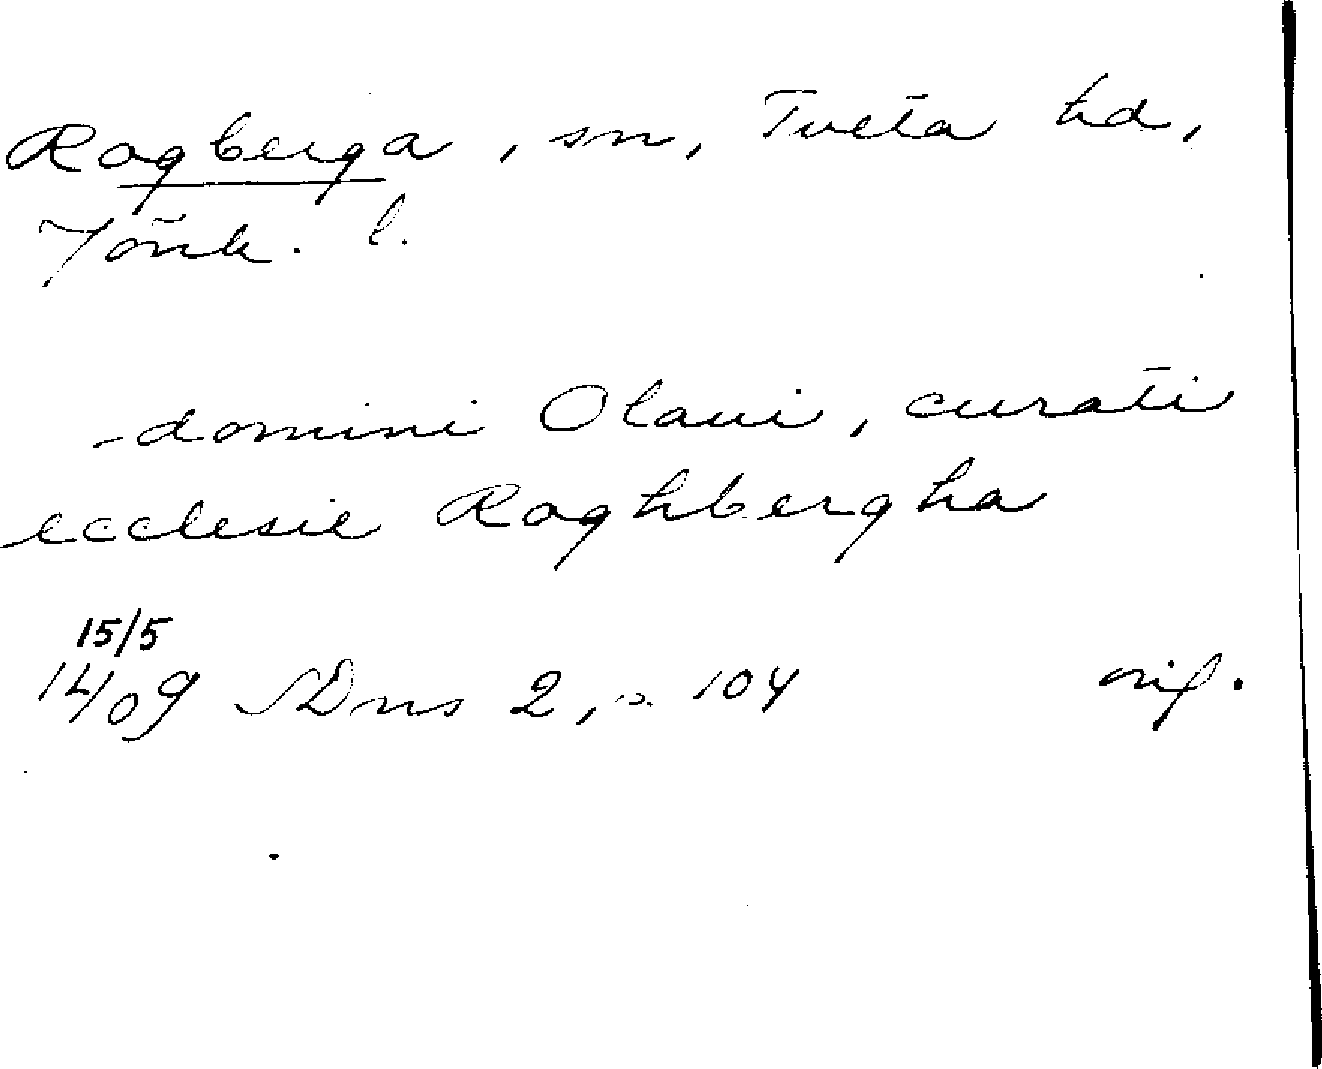 Rogberga, sn, Tveta hd,
Jönk. l.
-domini Olaui, curati
ecclesie Roghbergha
15/5
14/09 SDns 2, s. 104 orig.